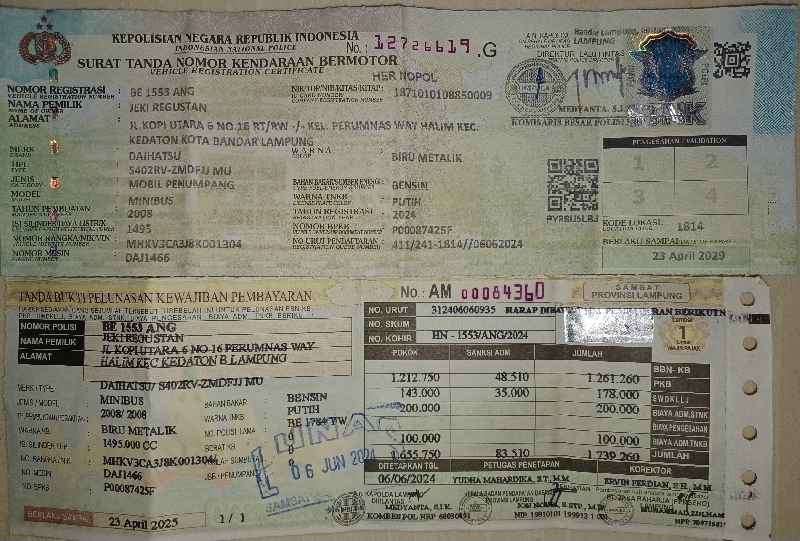 KEPOLISIAN NEGARA REPUBLIK INDONESIA
INDONESIAN NATIONAL POLICE
No.: 12726619 .G
SURAT TANDA NOMOR KENDARAAN BERMOTOR
VEHICLE REGISTRATION CERTIFICATE
HER NOPOL
A.N. KAPOLDA LAMPUNG
Bandar Lampung,
DIREKTUR LALU LINTAS
TRAFFIC POLICE DIRECTOR
KOMISARIS BESAR POLISI
NOMOR REGISTRASI BE 1553 ANG
VEHICLE REGISTRATION NUMBER
NIK/TDP/NIB/KITAS/KITAP : 1871010108850009
NAMA PEMILIK JEKI REGUSTAN
NAME OF OWNER
ALAMAT JL.KOPI UTARA 6 NO.16 RT/RW -/- KEL. PERUMNAS WAY HALIM KEC.
ADDRESS
KEDATON KOTA BANDAR LAMPUNG
MERK DAIHATSU
BRAND
WARNA BIRU METALIK
COLOR
TIPE S402RV-ZMDFJJ MU
TYPE
JENIS MOBIL PENUMPANG
CATEGORY
BAHAN BAKAR/SUMBER ENERGI BENSIN
MODEL MINIBUS
MODEL
WARNA TNKB PUTIH
TAHUN PEMBUATAN 2008
TAHUN REGISTRASI 2024
ISI SILINDER/DAYA LISTRIK 1495
NOMOR BPKB P00087425F
NOMOR RANGKA/NIK/VIN MHKV3CA3J8K001304
NO.URUT PENDAFTARAN 411/241-1814//06062024
NOMOR MESIN DAJ1466
PENGESAHAN / VALIDATION
1 2
3 4
KODE LOKASI 1814
LOCATION CODE
BERLAKU SAMPAI
23 April 2029
TANDA BUKTI PELUNASAN KEWAJIBAN PEMBAYARAN
No.: AM 00084360
SAMSAT
PROVINSI LAMPUNG
NO. URUT 312406060935
NO. SKUM
NO. KOHIR HN - 1553/ANG/2024
Lembar
1
WAJIB PAJAK
NOMOR POLISI BE 1553 ANG
NAMA PEMILIK JEKI REGUSTAN
ALAMAT JL KOPI UTARA 6 NO 16 PERUMNAS WAY
HALIM KEC KEDATON B LAMPUNG
MERK / TYPE DAIHATSU/ S402RV-ZMDFJJ MU
JENIS / MODEL MINIBUS
BAHAN BAKAR BENSIN
2008/ 2008
WARNA TNKB PUTIH
WARNA KB BIRU METALIK
NO. POLISI LAMA BE 1784 YW
ISI SILINDER / HP 1495.000 CC
BERAT KB
NO. RANGKA/NIK MHKV3CA3J8K001304/
NO. MESIN DAJ1466
NO. BPKB P00087425F
LUNAS
06 JUN 2024
POKOK SANKSI ADM JUMLAH
1.212.750 48.510 1.261.260
143.000 35.000 178.000
200.000 200.000
100.000 100.000
1.655.750 83.510 1.739.260
BBN- KB
PKB
SWDKLLJ
BIAYA ADM.STNK
BIAYA PENGESAHAN
BIAYA ADM.TNKB
JUMLAH
DITETAPKAN TGL PETUGAS PENETAPAN KOREKTOR
06/06/2024 YUDHA MAHARDIKA, ST, MM ERVIN FERDIAN, S.H., MM
BERLAKU SAMPAI
23 April 2025
1 / 1